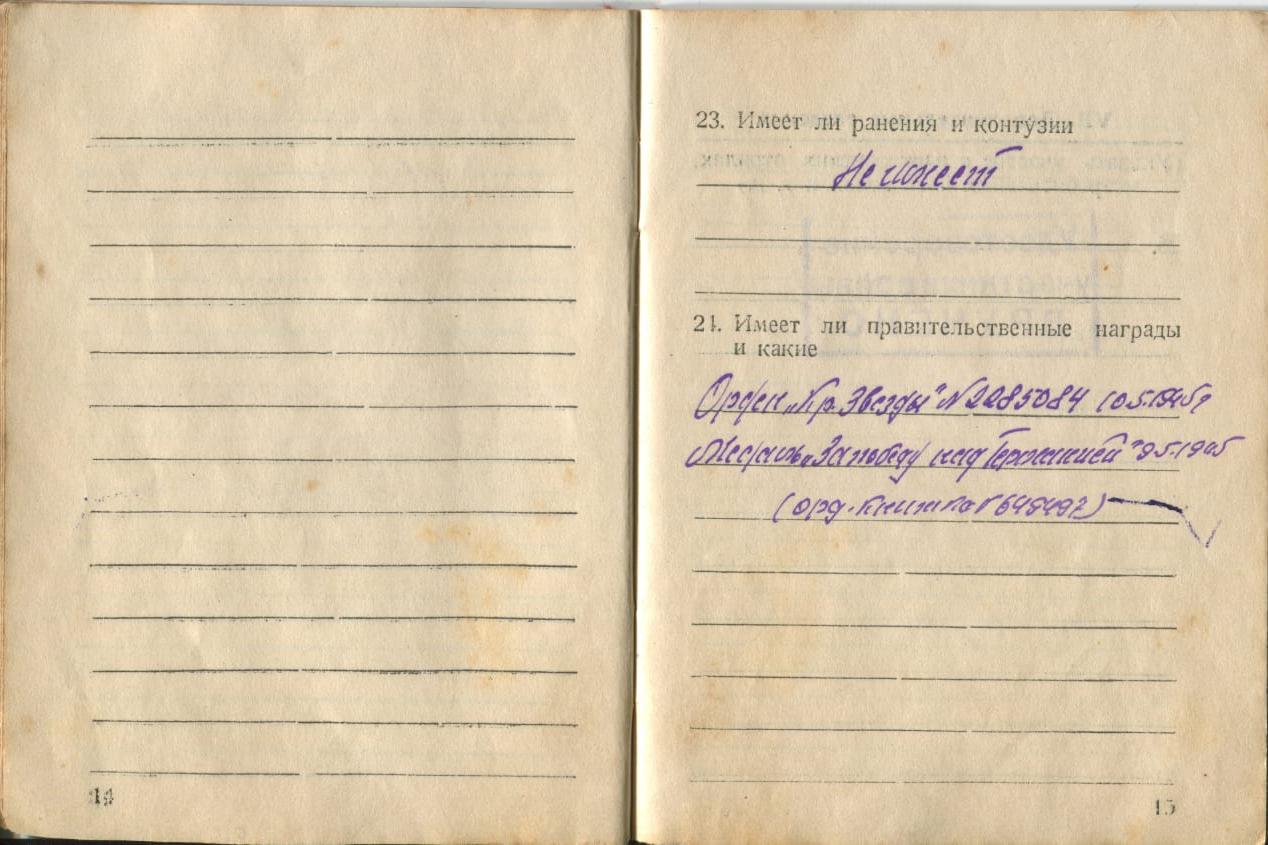 14
23. Имеет ли ранения и контузии
Не имеет
24. Имеет ли правительственные награды
и какие
Орден „Кр. Звезды" № 2285084 10.5.1945г
Медаль „За победу над Германией" 9.5.1945
(орд. книжка № 649497)
15